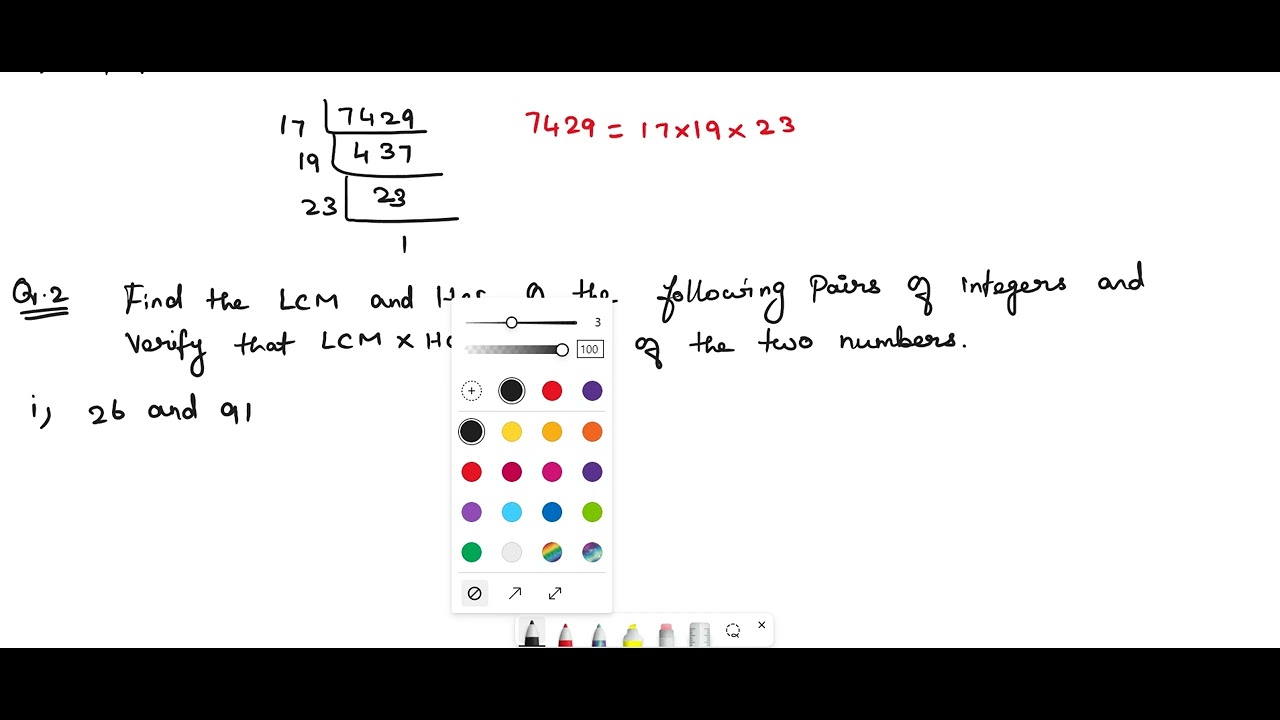 17 7429 7429 = 17×19×23
19 437
23 23
1
Qr.2 Find the LCM and the following Pairs of integers and
Verify that LCM × of the two numbers.
i, 26 and 91
3
100